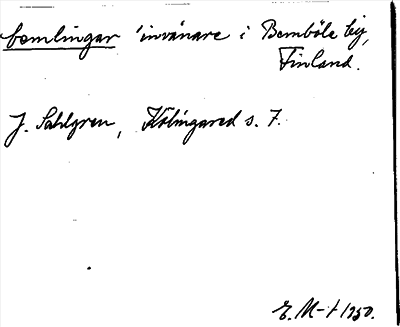 bemlingar 'invånare i Bemböle by,
Finland.
J. Sahlgren, Kölingared s. 7.
E. M-t 1950.